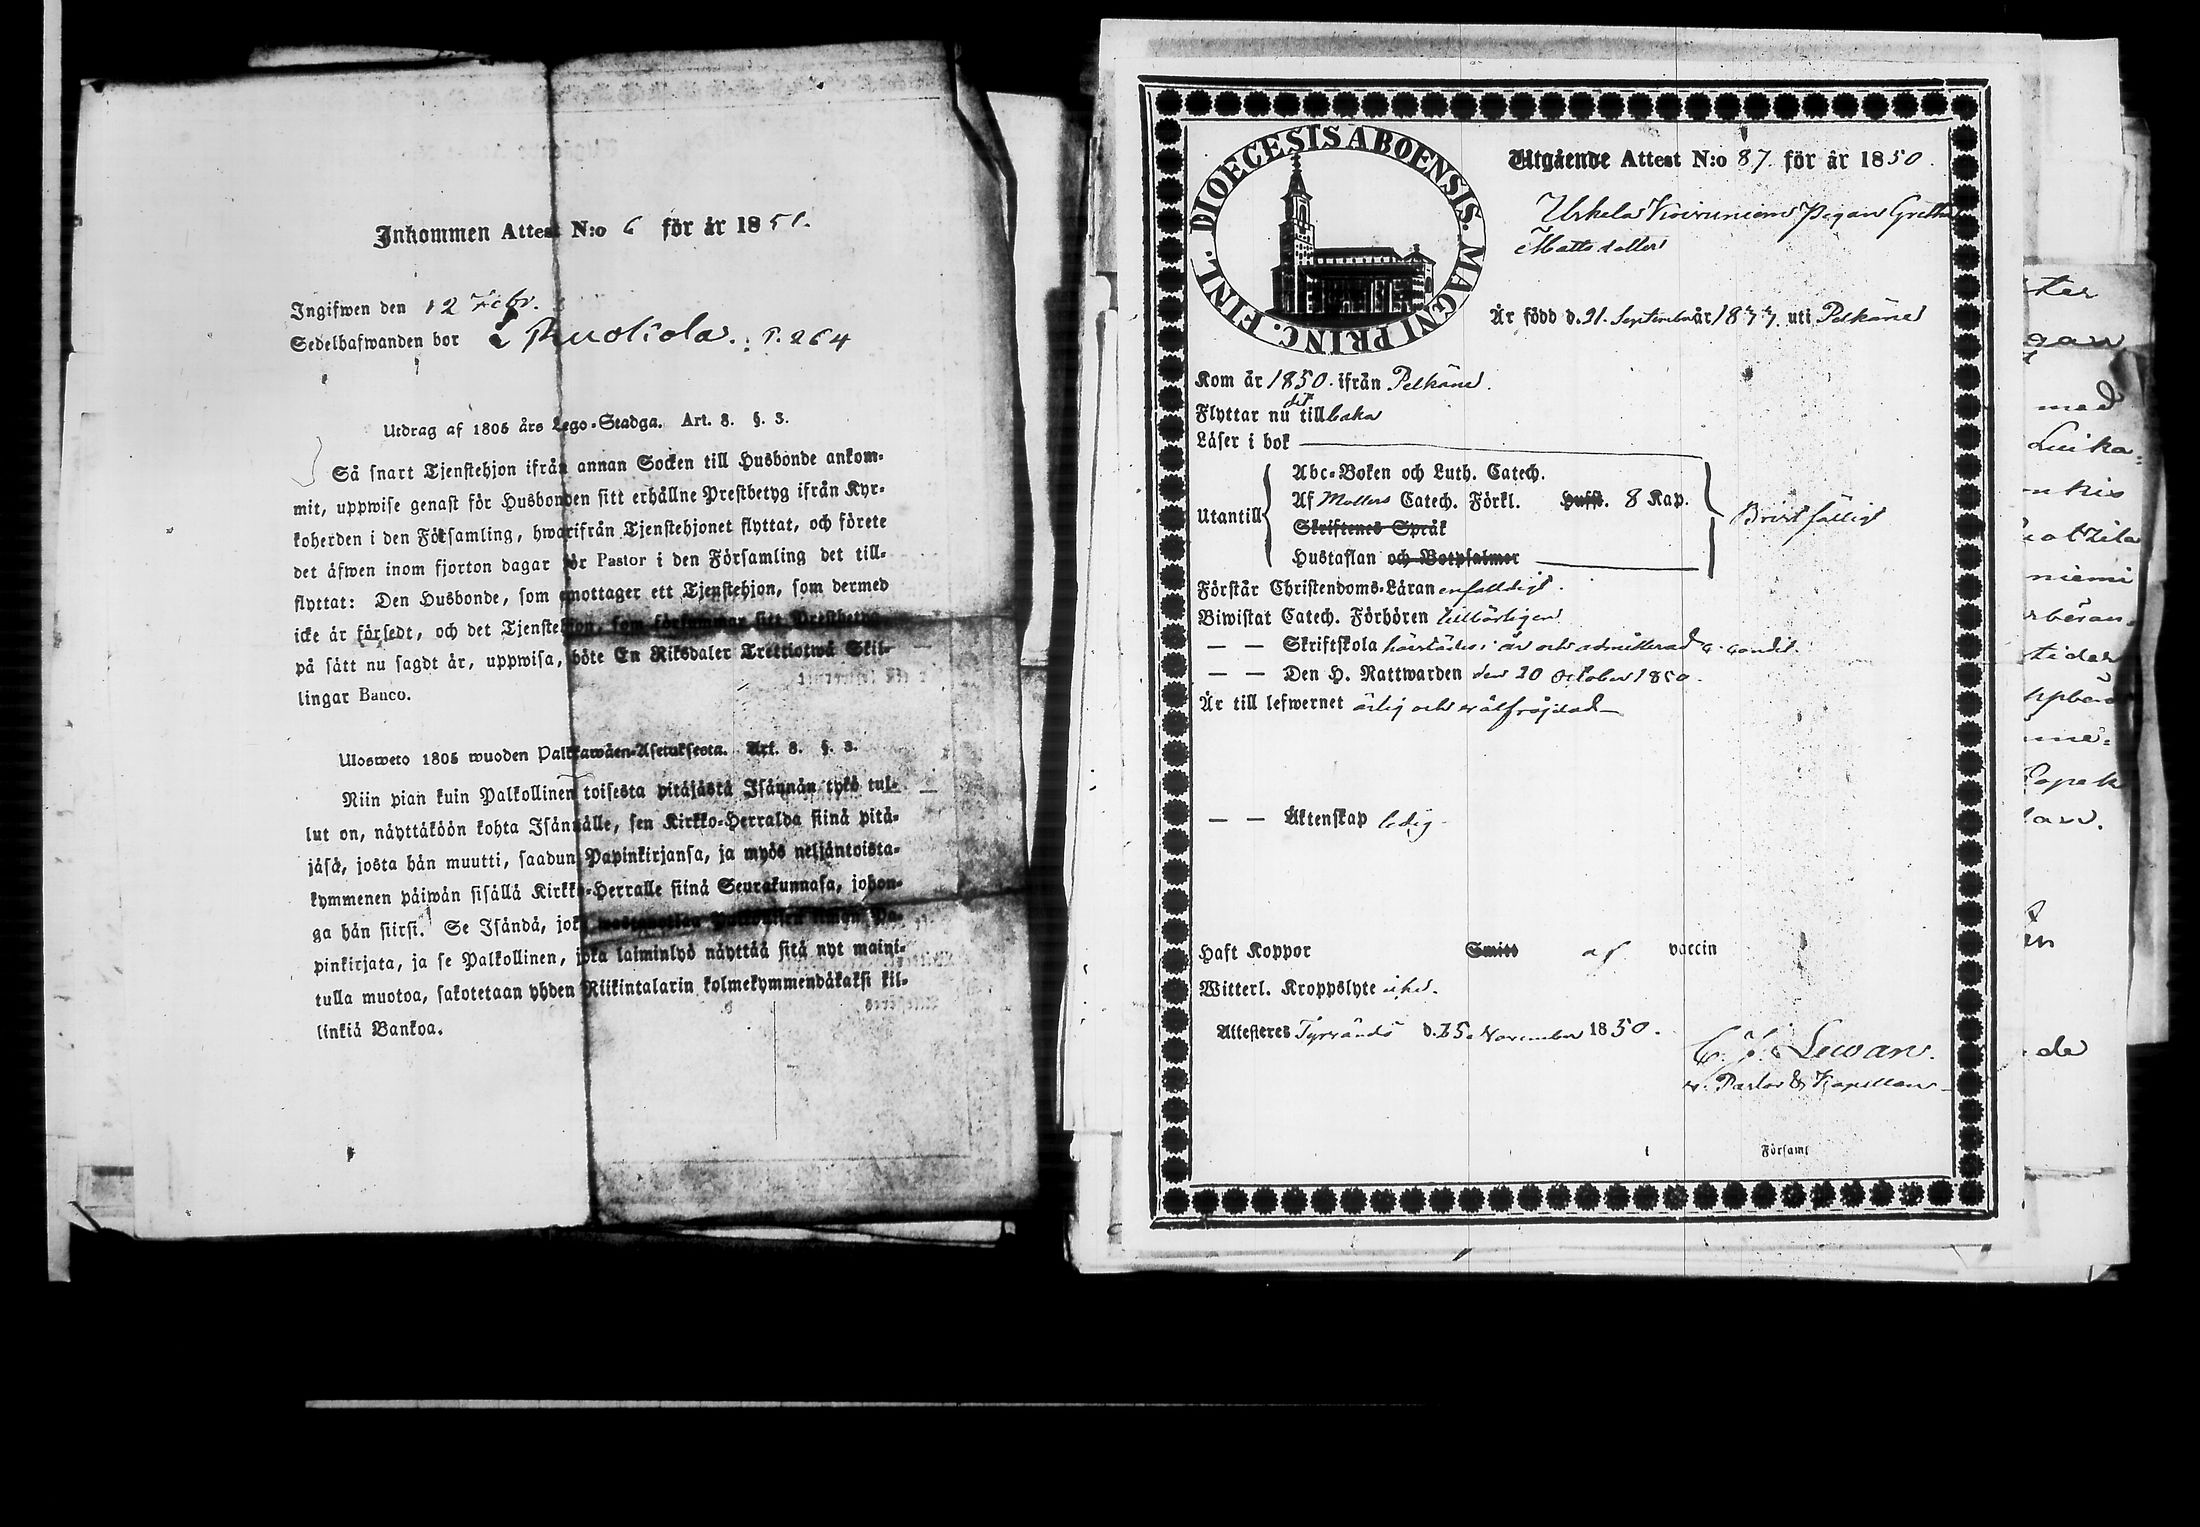 Inkommen Attest N:o 6 för år 1851.
Ingifwen den 12 Febr.
Sedelhafwanden bor i Ruokola. P. 264
Utdrag af 1805 års Lego-Stadga. Art. 8. §. 3.
Så snart Tjenstehjon ifrån annan Socken till Husbonde ankom-
mit, uppwise genast för Husbonden sitt erhållne Prestbetyg ifrån Kyr-
koherden i den Församling, hwarifrån Tjenstehjonet flyttat, och förete
det äfwen inom fjorton dagar för Pastor i den Församling det till-
flyttat: Den Husbonde, som emottager ett Tjenstehjon, som dermed
icke är försedt, och det Tjenstehjon, som försummar sitt Prestbetyg,
på sätt nu sagdt är, uppwisa, böte En Riksdaler Trettiotwå Skil-
lingar Banco.
Ulosweto 1805 wuoden Palkkawäen-Asetuksesta. Art. 8. §. 3.
Niin pian kuin Palkollinen toisesta pitäjästä Isännän tykö tul-
lut on, näyttäköön kohta Isännälle, sen Kirkko-Herralda siinä pitä-
jäsä, josta hän muutti, saadun Papinkirjansa, ja myös neljäntoista-
kymmenen päiwän sisällä Kirkko-Herralle siinä Seurakunnasa, johon-
ga hän siirsi. Se Isändä, joka wastanottaa Palkollisen ilman Pa-
pinkirjata, ja se Palkollinen, joka laiminlyö näyttää sitä nyt maini-
tulla muotoa, sakotetaan yhden Riikintalarin kolmekymmendäkaksi kil-
linkiä Bankoa.
DIOECESIS ABOENSIS. MAGNI PRINC. FINL.
Utgående Attest N:o 87. för år 1850.
Pigan Gretha
Mattsdotter
Är född d. 21. September år 1833. uti Pelkäne
Kom år 1850. ifrån Pelkäne.
Flyttar nu dit tillbaka
Läser i bok
Abc-Boken och Luth. Catech.
Utantill
Af Mollers Catech. Förkl. Hufst. 8 Kap.
Bristfälligt
Skriftenes Språk
Hustaflan och Botpsalmer
Förstår Christendoms-Läran enfaldigt.
Biwistat Catech. Förhören tillbörligen
— — Skriftskola härstädes i år och admitterad
— — Den H. Nattwarden den 20 October 1850.
Är till lefwernet ärlig och wälfrejdad
— — Äktenskap ledig
Haft Koppor Smitt af vaccin
Witterl. Kroppslyte utan.
Attesteras Tyrvändö d. 25. November 1850.
C. J. Lewan.
v. Pastor & Kapellan
Församl